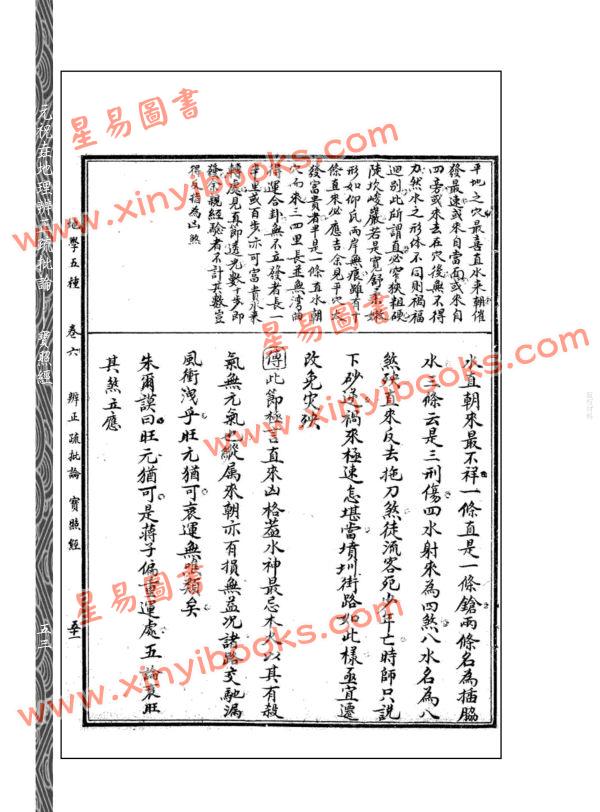 平地之穴最喜直水來朝催
發最速或來自當面或來自
四旁或來去在穴後無不得
力然水之形体不同則禍福
迥別此所謂直必窄狹粗硬
陡坎峻嚴若是寬舒
形如仰瓦兩岸無痕雖有十
條直來必應吉余見平穴大
發富貴者半是一條直水朝
穴而來三四里長並無灣曲
得運合卦無不立發者長一
里或百步亦可富貴水來
轉處見直節透光數十步即
發余親經驗者不計其數豈
得反指為凶煞
水直朝來最不祥一條直是一條鎗兩條名為插脇
水三條云是三刑傷四水射來為四煞八水名為八
煞殃直來反去拖刀煞徒流客死少年亡時師只說
下砂逆禍來極速怎堪當墳圳街路如此樣亟宜遷
改免灾殃
傳此節極言直來凶格葢水神最忌木火以其有殺
氣無元氣也縱属來朝亦有損無益况諸路交馳漏
風衝洩乎旺元猶可衰運無噍類矣
朱爾謨曰旺元猶可是蔣子偏重運處五論衰旺
其煞立應
地學五種 卷六 辨正疏批論 寶照經
元祝垚地理辨正疏批論 寶照經 五三
星易圖書
www.xinyibooks.com
星易圖書
www.xinyibooks.com
星易圖書
www.xinyibooks.com